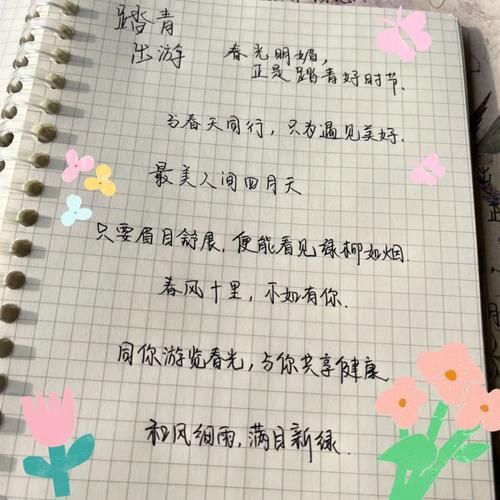 踏青
出游
春光明媚,
正是踏青好时节.
与春天同行,只为遇见美好.
最美人间四月天
只要眉目舒展,便能看见绿柳如烟.
春风十里,不如有你.
同你游览春光,与你共享健康
和风细雨,满目新绿.